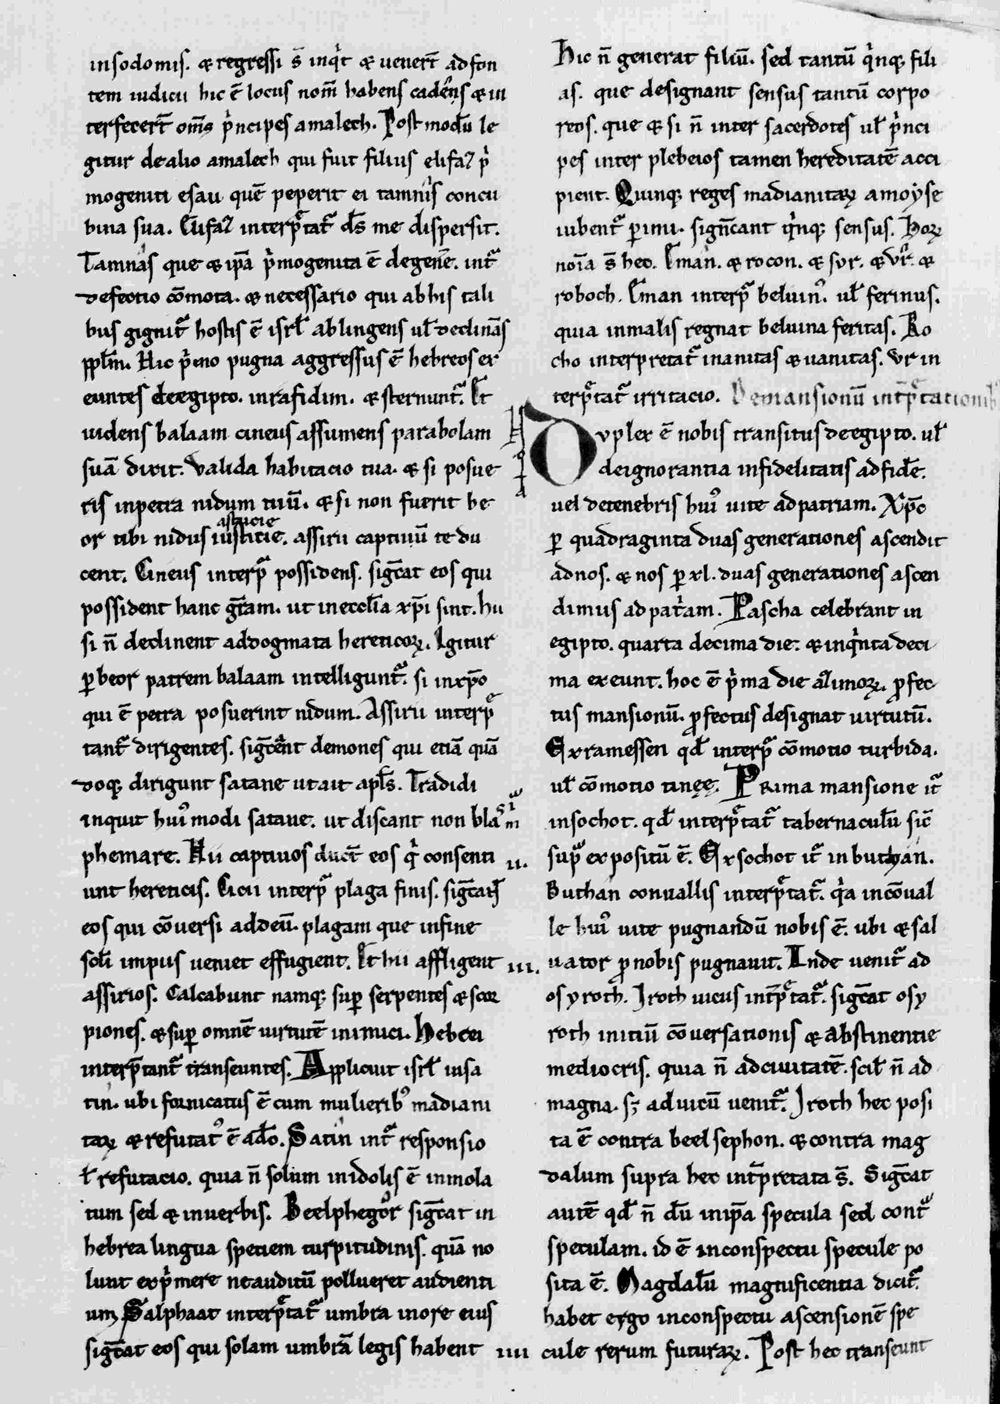 insodomis. ⁊ regressi s̄ inq̇t ⁊ uener̄t adfon
tem iudicii hic ē locus nom̄ habens cadēs ⁊ in
terfecer̄t om̄s p̄ncipes amalech. Postmodū le
gitur dealio amalech qui fuit filius elifaz p̄
mogeniti esau quē peperit ei tamnis concu
bina sua. Elifaz interp̄tat̄ d̄s me dispersit.
Tamnas que ⁊ ip̄a p̄mogenita ē degene. int̄
defectio cōmota. ⁊ necessario qui abhis tali
bus gignit̄ hostis ē isrl̄ ablingens ul̄ declinās
ppl̄m. Hic p̄mo pugna aggressus ē hebreos ex
euntes deegipto. inrafidim. ⁊ sternunt̄. Et
uidens balaam cineus assumens parabolam
suā dixit. Valida habitacio tua. ⁊ si posue
ris inpetra nidum tuū. ⁊ si non fuerit be
astucie
or tibi nidus iustitie. assirii captiuū te du
cent. Cineus interp̄ possidens. sigc̄at eos qui
possident hanc gr̄am. ut inecclīa xp̄i sint. hii
si n̄ declinent addogmata hereticoꝝ. Igitur
ꝑ beor patrem balaam intelligunt̄. si inxp̄o
qui ē petra posuerint nidum. Assirii interp̄
tant̄ dirigentes. sigc̄ent demones qui etiā quā
doq; dirigunt satane utait apl̄s. Tradidi
inquit hui᾿modi satane. ut discant non blas
phemare. Hii captiuos duct̄ eos q̇ consenti
unt hereticis. Cicu interp̄ plaga finis. sigc̄at
eos qui cōuersi addeū. plagam que infine
scl̄i impiis ueniet effugient. Et hii affligent
assirios. Calcabunt namq; suꝑ serpentes ⁊ scor
piones. ⁊ suꝑ omnē uirtutē inimici. Hebrei
interp̄tant̄ transeuntes. Applicuit isrl̄ insa
tin. ubi fornicatus ē cum mulierib᾿ madiani
taꝝ ⁊ refutat᾿ ē adō. Satin int̄ responsio
ł refutacio. quia n̄ solum inidolis ē inmola
tum sed ⁊ inuerbis. Beelphegor sigc̄at in
hebrea lingua speciem turpitudinis. quā no
lunt exp̄mere neauditū pollueret audienti
um. Salphaat interp̄tat̄ umbra inore eius
sigc̄at eos qui solam umbrā legis habent
Hic n̄ generat filiū. sed tantū q̇nq; fili
as. que designant sensus tantū corpo
reos. que ⁊ si n̄ inter sacerdotes ul̄ p̄nci
pes inter plebeios tamen hereditatē acci
pient. Quinq; reges madianitaꝝ amoyse
iubent̄ ꝑimi. signc̄ant q̇nq; sensus. Hoꝝ
noīa s̄ hec. Eman. ⁊ rocon. ⁊ syr. ⁊ vr. ⁊
roboch. Eman interp̄ beluin᾿. ul̄ ferinus.
quia inmalis regnat beluina feritas. Ro
cho interpretat̄ inanitas ⁊ uanitas. Vr in
terp̄tat̄ irritacio. Demansionū int̄p̄tationib᾿
Duplex ē nobis transitus deegipto. ul̄
deignorantia infidelitatis adfidē.
uel detenebris hui᾿ uite adpatriam. Xp̄c
ꝑ quadraginta duas generationes ascendit
adnos. ⁊ nos ꝑ xl. duas generationes ascen
dimus adpatr̄am. Pascha celebrant in
egipto. quarta decima die. ⁊ inq̇nta deci
ma exeunt. hoc ē p̄ma die azimoꝝ. ꝓfec
tus mansionū. ꝓfectus designat uirtutū.
Exramessen qd̄ interp̄ cōmotio turbida.
ul̄ cōmotio tinęę. Prima mansione it̄
insochot. qd̄ interp̄tat̄ tabernaculū sic̄
sup̄ expositū ē. Exsochot it̄ inbuthan.
ii. Buthan conuallis interp̄tat̄. q̇a incōual
le hui᾿ uite pugnandū nobis ē. ubi ⁊ sal
uator ꝓ nobis pugnauit. Inde uenit̄ ad
iii. osyroth. Iroth uicus int̄p̄tat̄. sigc̄at osy
roth initiū cōuersationis ⁊ abstinentie
mediocris. quia n̄ adciuitatē. scil̄ n̄ ad
magna. sꝫ aduicū uenit̄. Iroth hec posi
ta ē contra beelsephon. ⁊ contra mag
dalum supra hec int̄pretata s̄. Sigc̄at
autē qd̄ n̄ dū inip̄a specula sed cont̄
speculam. id ē inconspectu specule po
sita ē. Magdalū magnificentia dicit̄.
habet ergo inconspectu ascensionē spe
iiii cule rerum futuraꝝ. Post hec transeunt